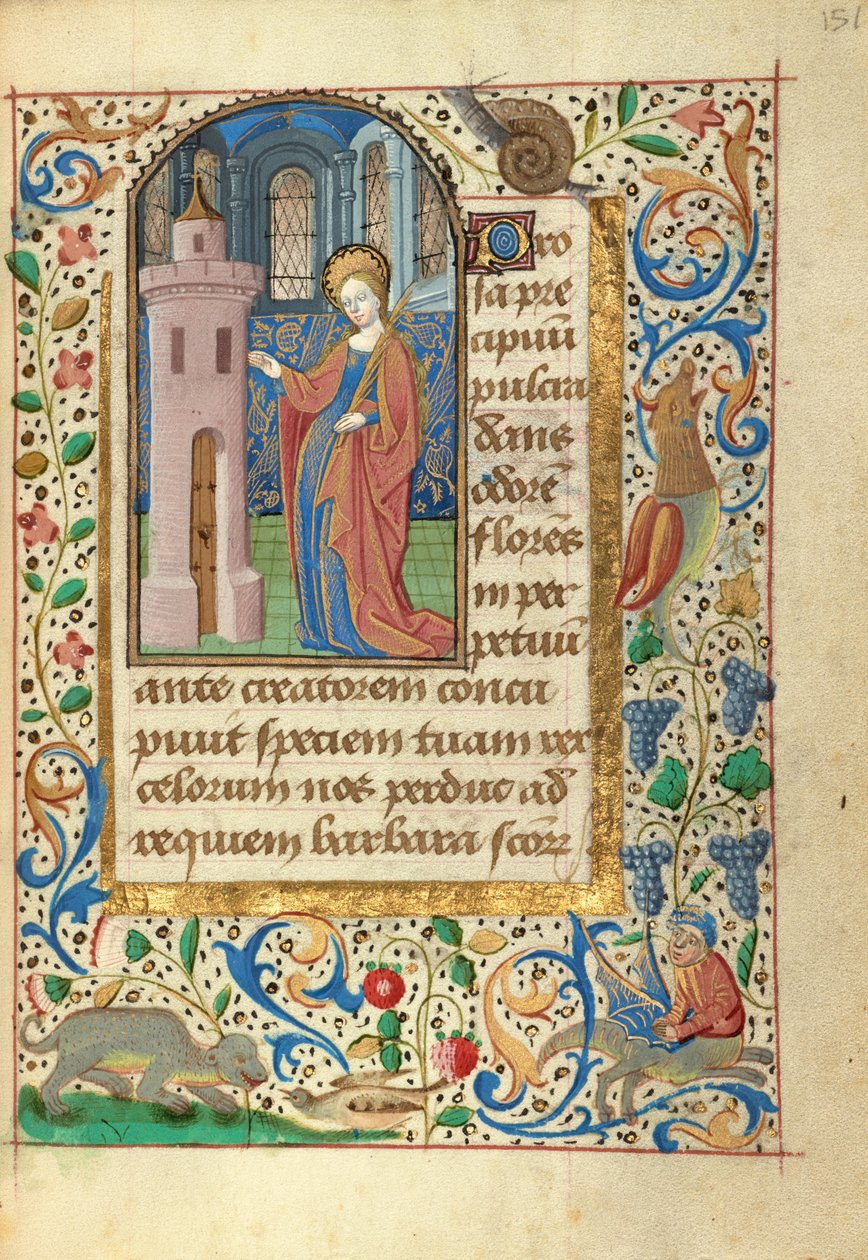 151
Pro
sa pre
cipuũ
pulcra
dans
odorẽ
flores
in per
petuũ
ante creatorem concu
piuit speciem tuam rex
celorum nos perduc ad
requiem barbara